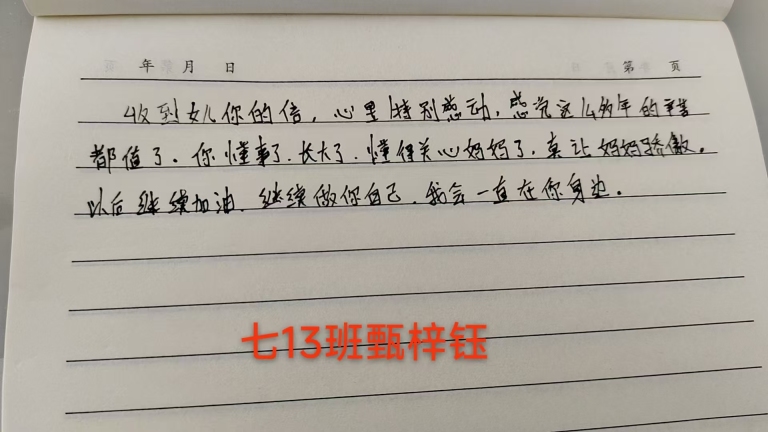 年 月 日 第 页
收到女儿你的信，心里特别感动，感觉这么多年的辛苦
都值了。你懂事了.长大了.懂得关心妈妈了.真让妈妈骄傲。
以后继续加油.继续做你自己.我会一直在你身边。
七13班甄梓钰